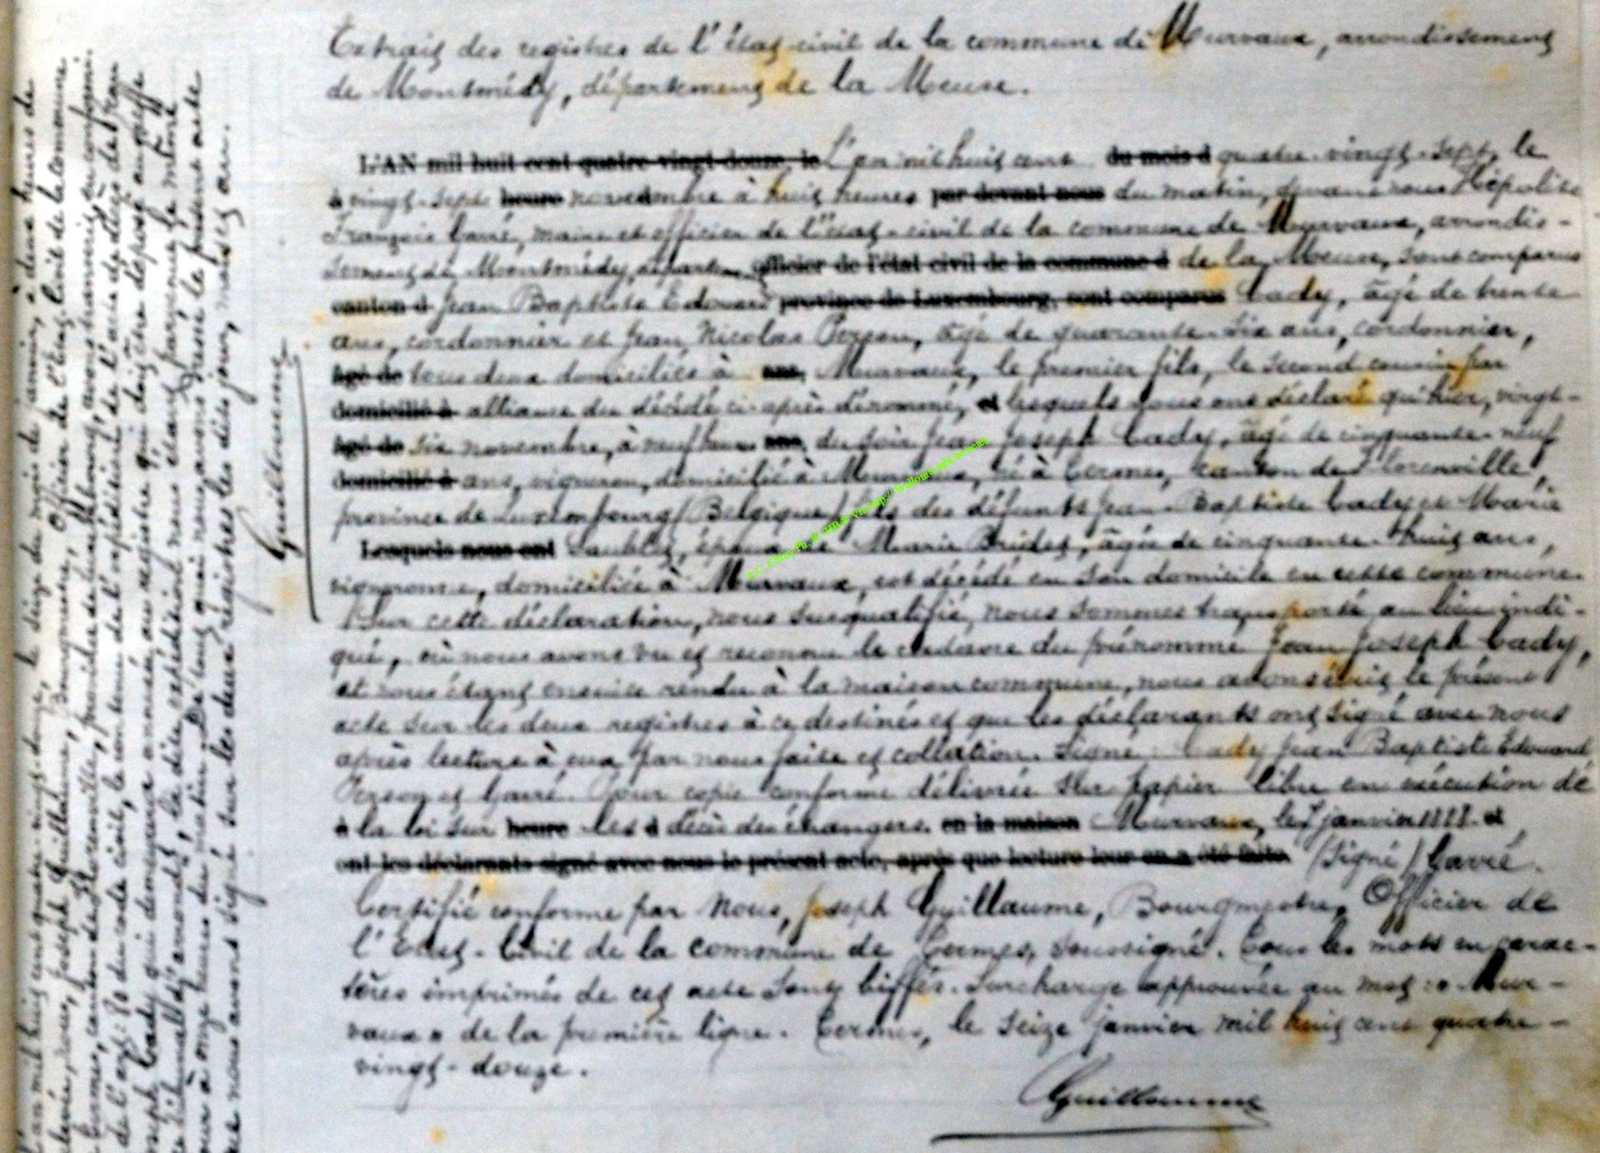 Extrait des registres de l'état civil de la commune de Murvaux, arrondissement
de Montmédy, département de la Meuse.
L'AN mil huit cent quatre-vingt-douze, le l'an mil huit cent du mois d quatre-vingt-sept, le
à vingt-sept heure novembre à huit heures par devant nous du matin, devant nous Hippolite
François Gavré, maire et officier de l'état-civil de la commune de Murvaux, arrondis-
sement de Montmédy, départem officier de l'état civil de la commune d de la Meuse, sont comparus
canton d Jean Baptiste Edouard province de Luxembourg, sont comparus Cady, âgé de trente
ans, cordonnier et Jean Nicolas Person, âgé de quarante-six ans, cordonnier,
âgé de tous deux domiciliés à ans, Murvaux, le premier fils, le second cousin par
domicilié à alliance du décédé ci-après dénommé, et lesquels nous ont déclaré qu'hier, vingt-
âgé de six novembre, à neuf heures ans, du soir Jean Joseph Cady, âgé de cinquante-neuf
domicilié à ans, vigneron, domicilié à Murvaux, né à Termes, canton de Florenville,
province de Luxembourg (Belgique) fils des défunts Jean-Baptiste Cady et Marie
Lesquels nous ont époux de Marie âgée de cinquante-huit ans,
vigneronne, domiciliée à Murvaux, est décédé en son domicile en cette commune.
Sur cette déclaration, nous susqualifié, nous sommes transporté au lieu indi-
qué, où nous avons vu et reconnu le cadavre du prénommé Jean Joseph Cady,
et nous étant ensuite rendu à la maison commune, nous avons écrit le présent
acte sur les deux registres à ce destinés et que les déclarants ont signé avec nous
après lecture à eux par nous faite et collation. Signé: Cady Jean Baptiste Edouard
Person et Gavré. Pour copie conforme délivrée sur papier libre en exécution de
à la loi sur heure les d décès des étrangers. en la maison Murvaux, le 7 janvier 1888. et
ont les déclarants signé avec nous le présent acte, après que lecture leur en a été faite. (Signé) Gavré.
Certifié conforme par Nous, Joseph Guillaume, Bourgmestre, Officier de
l'Etat-Civil de la commune de Termes, soussigné. Tous les mots en carac-
tères imprimés de cet acte sont biffés. Surcharge approuvée au mot: « Mur-
vaux » de la première ligne. Termes, le seize janvier mil huit cent quatre-
vingt-douze.
Guillaume
Guillaume
L'an mil huit cent quatre-vingt-douze, le seize du mois de janvier, à deux heures de
relevée, nous, Joseph Guillaume, Bourgmestre, Officier de l'Etat Civil de la commune
de Termes, canton de Florenville, province de Luxembourg, avons transcrit en conformi-
té de l'art: 80 du code civil, le contenu de l'expédition de l'acte de décès de Jean
Joseph Cady qui demeurera annexée au registre qui doit être déposé au greffe
du tribunal d'Arlon, la dite expédition nous étant parvenue le même
jour à onze heures du matin. De tout quoi nous avons dressé le présent acte
que nous avons signé sur les deux registres les dits jour, mois et an.